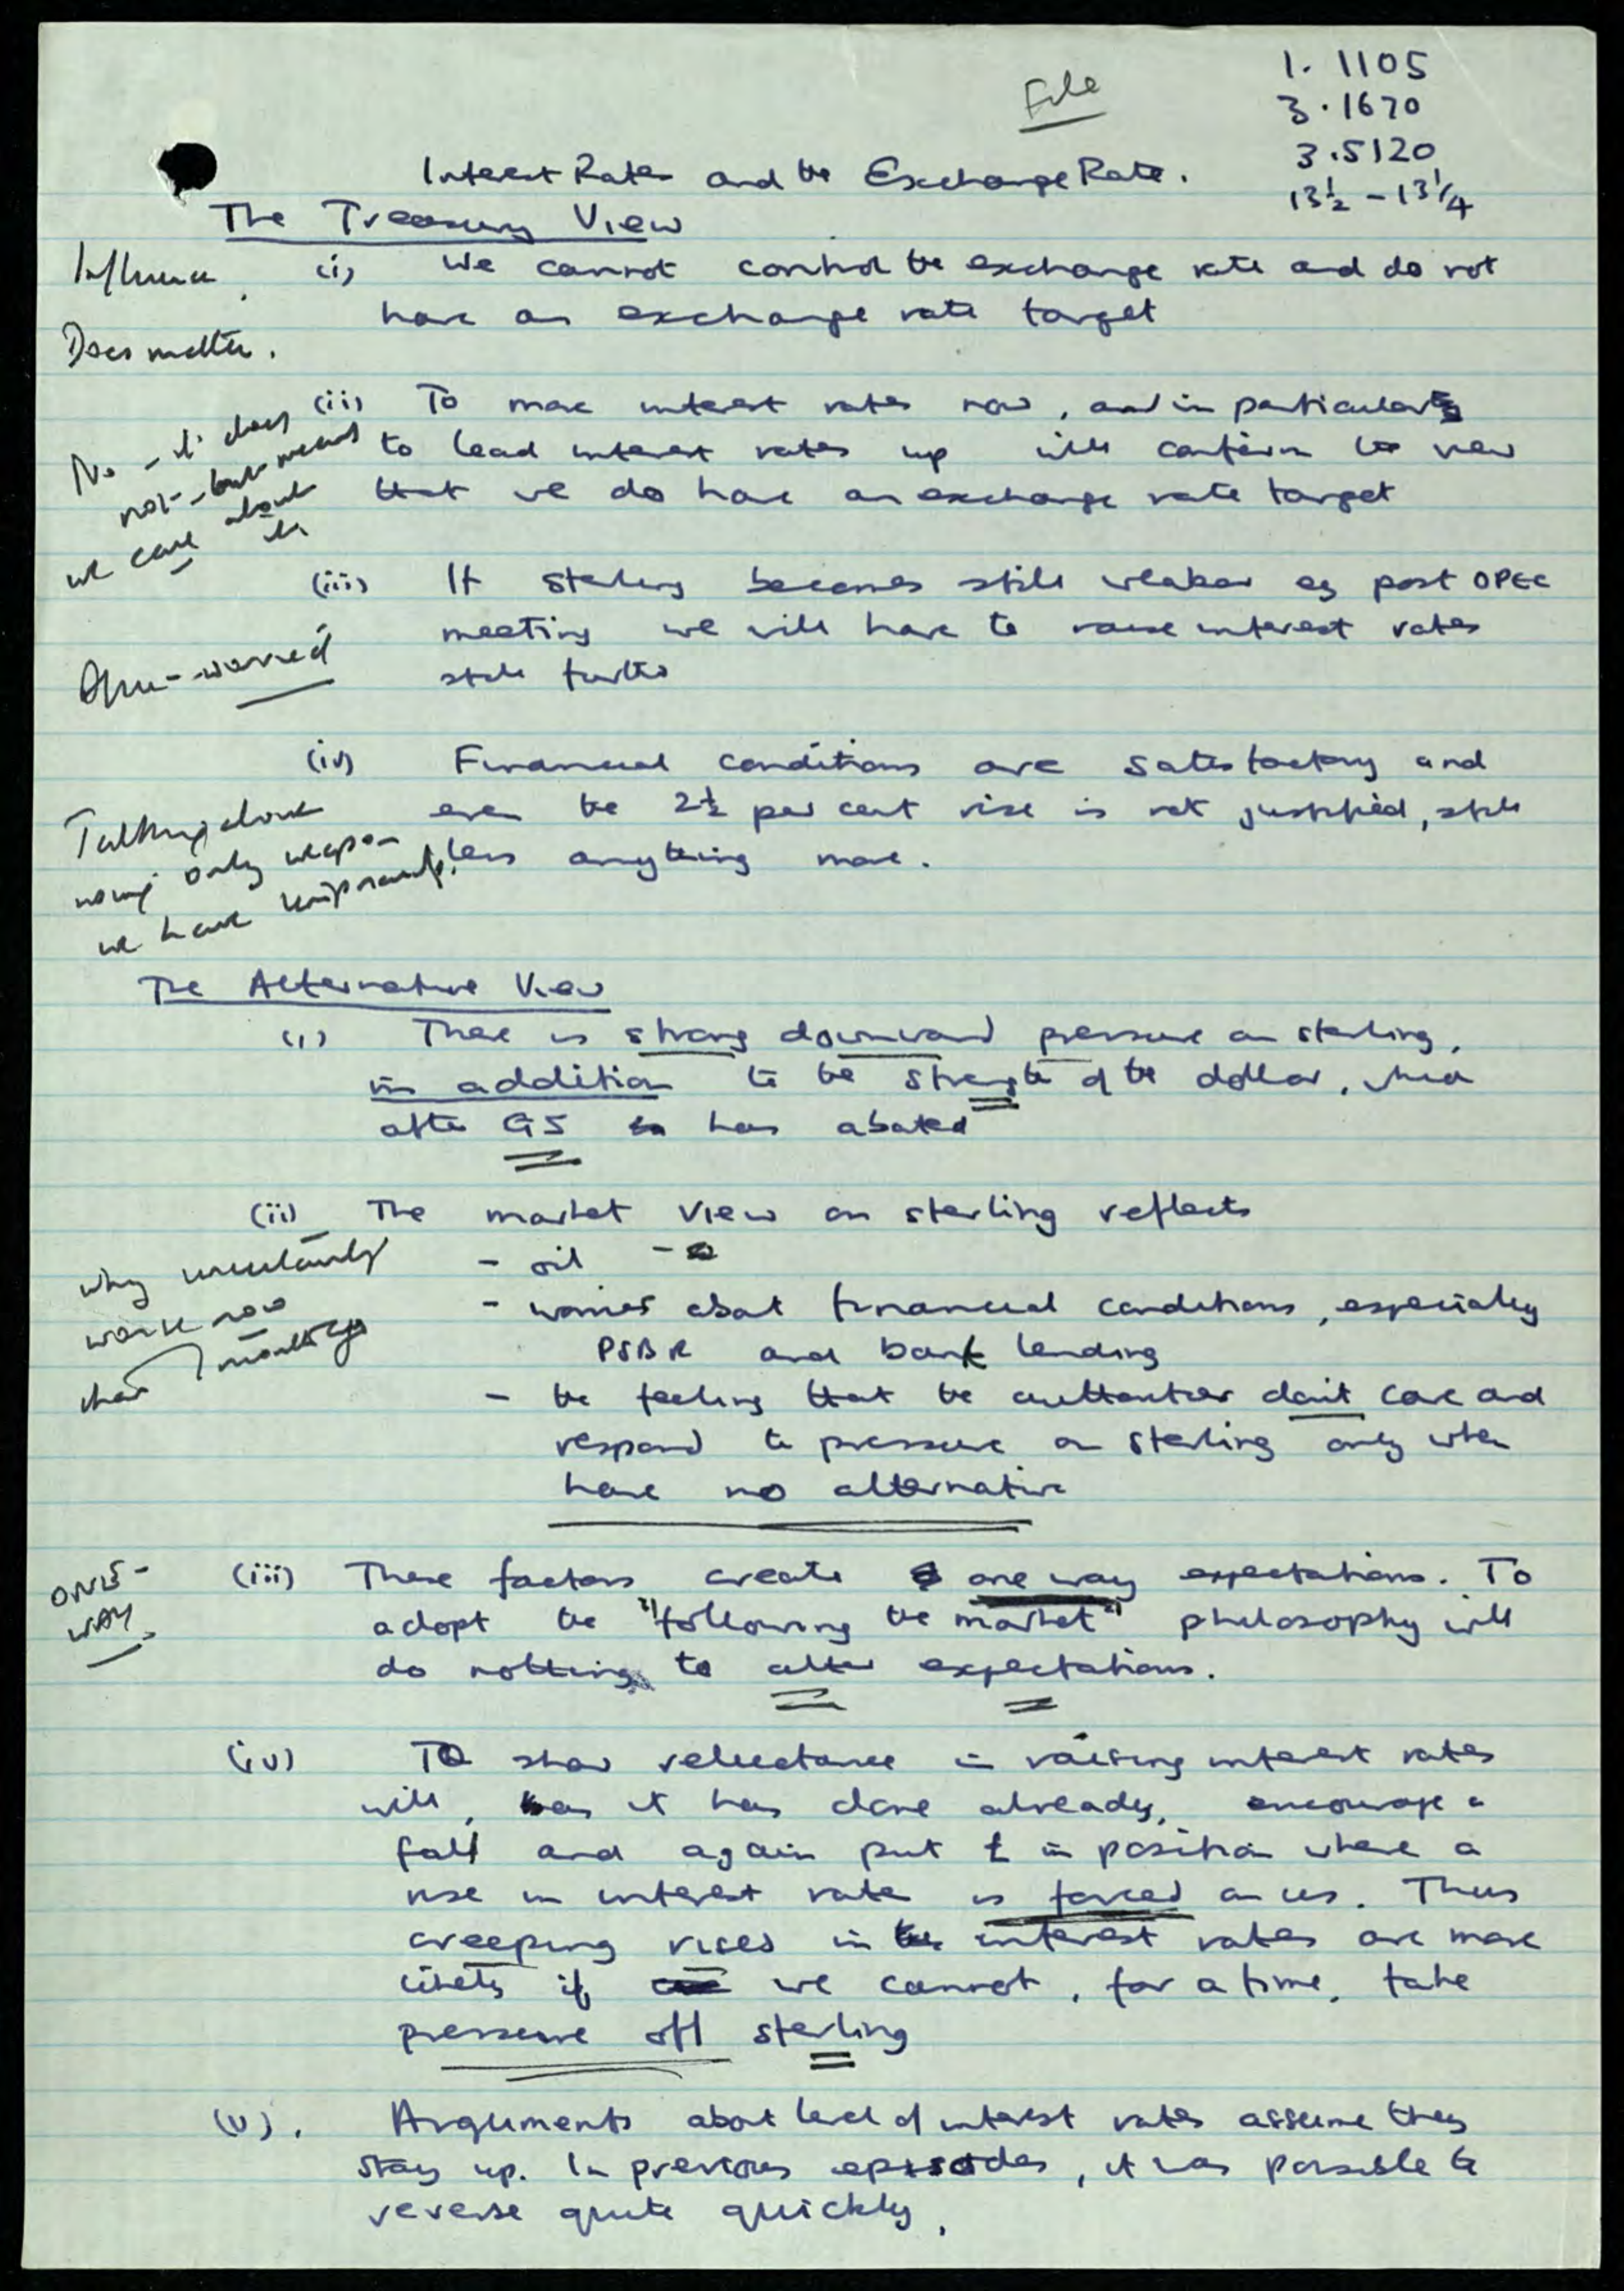 File
1.1105
3.1670
3.5120
13½ - 13¼
Interest Rates and the Exchange Rate.
The Treasury View
Influence.
(i) We cannot control the exchange rate and do not
have an exchange rate target
Does matter.
(ii) To move interest rates now, and in particular
to lead interest rates up will confirm the view
that we do have an exchange rate target
No - it does
not - but means
we care about
it
(iii) If sterling becomes still weaker eg post OPEC
meeting we will have to raise interest rates
still further
worried
(iv) Financial conditions are satisfactory and
even the 2½ per cent rise is not justified, still
less anything more.
Talking about
using only weapon
we have
The Alternative View
(i) There is strong downward pressure on sterling,
in addition to the strength of the dollar, which
after G5 has abated
(ii) The market view on sterling reflects
- oil -
- worries about financial conditions, especially
PSBR and bank lending
- the feeling that the authorities don't care and
respond to pressure on sterling only when
have no alternative
why uncertainty
worse now
than months ago
ONE-
WAY.
(iii) These factors create one way expectations. To
adopt the "following the market" philosophy will
do nothing to alter expectations.
(iv) To show reluctance in raising interest rates
will, as it has done already, encourage a
fall and again put £ in position where a
rise in interest rate is forced on us. Thus
creeping rises in interest rates are more
likely if we cannot, for a time, take
pressure off sterling
(v). Arguments about level of interest rates assume they
stay up. In previous episodes, it was possible to
reverse quite quickly.